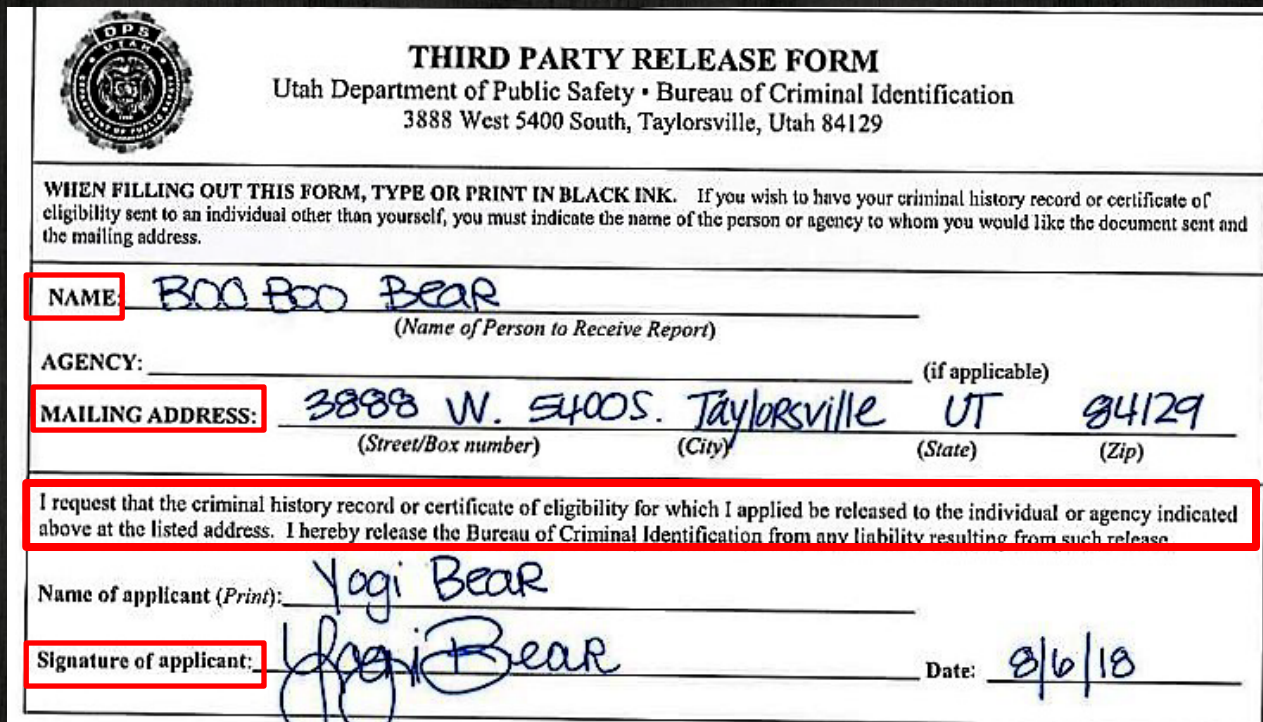 DPS
UTAH
THIRD PARTY RELEASE FORM
Utah Department of Public Safety • Bureau of Criminal Identification
3888 West 5400 South, Taylorsville, Utah 84129
WHEN FILLING OUT THIS FORM, TYPE OR PRINT IN BLACK INK. If you wish to have your criminal history record or certificate of
eligibility sent to an individual other than yourself, you must indicate the name of the person or agency to whom you would like the document sent and
the mailing address.
NAME: BOO BOO BeaR
(Name of Person to Receive Report)
AGENCY: (if applicable)
MAILING ADDRESS: 3888 W. 5400S. TayloRsville UT 84129
(Street/Box number) (City) (State) (Zip)
I request that the criminal history record or certificate of eligibility for which I applied be released to the individual or agency indicated
above at the listed address. I hereby release the Bureau of Criminal Identification from any liability resulting from such release
Name of applicant (Print): Yogi BeaR
Signature of applicant: Yogi BeaR Date: 8/6/18